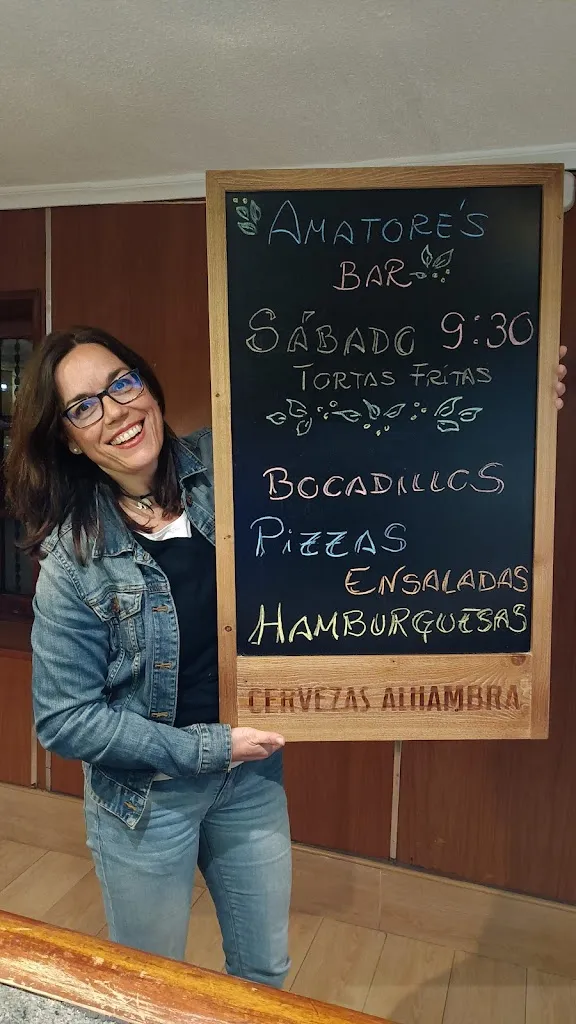 AMATORE'S
BAR
SÁBADO 9:30
TORTAS FRITAS
BOCADILLOS
PIZZAS
ENSALADAS
HAMBURGUESAS
CERVEZAS ALHAMBRA